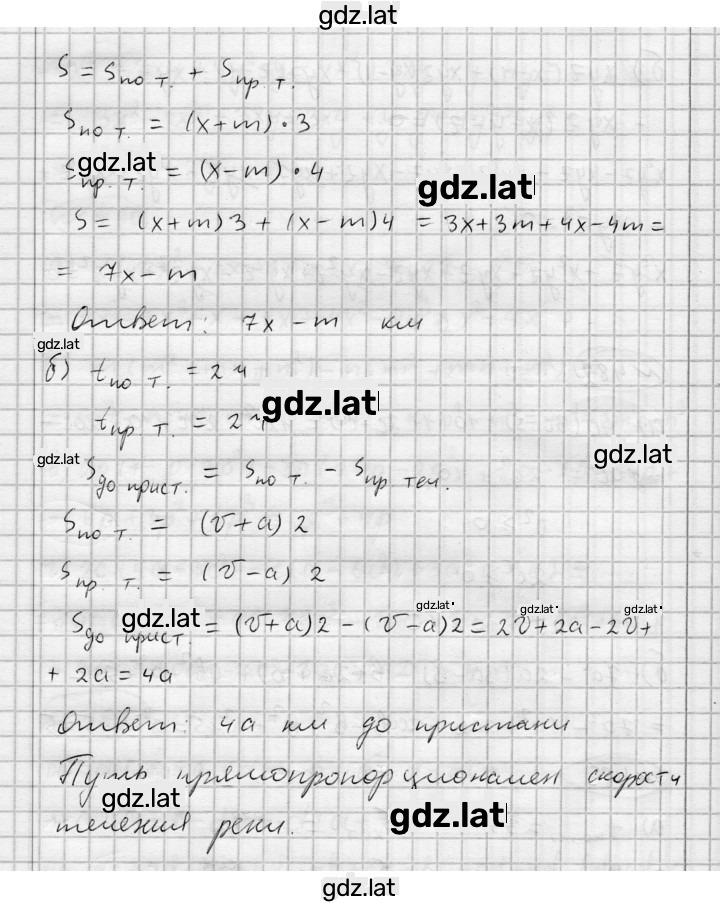 gdz.lat
S = S по т. + S пр. т.
S по т. = (x+m)·3
gdz.lat
S пр. т. = (x-m)·4
gdz.lat
S = (x+m)3 + (x-m)4 = 3x+3m+4x-4m=
= 7x-m
Ответ: 7x-m км
gdz.lat
б) t по т. = 2 ч
gdz.lat
t пр. т. = 2 ч
gdz.lat
gdz.lat
S до прист. = S по т. - S пр. теч.
S по т. = (v+a) 2
S пр. т. = (v-a) 2
gdz.lat gdz.lat gdz.lat gdz.lat
S до прист. = (v+a)2 - (v-a)2 = 2v+2a-2v+
+ 2a = 4a
Ответ: 4a км до пристани
Путь прямопропорционален скорости
gdz.lat
gdz.lat
течения реки.
gdz.lat